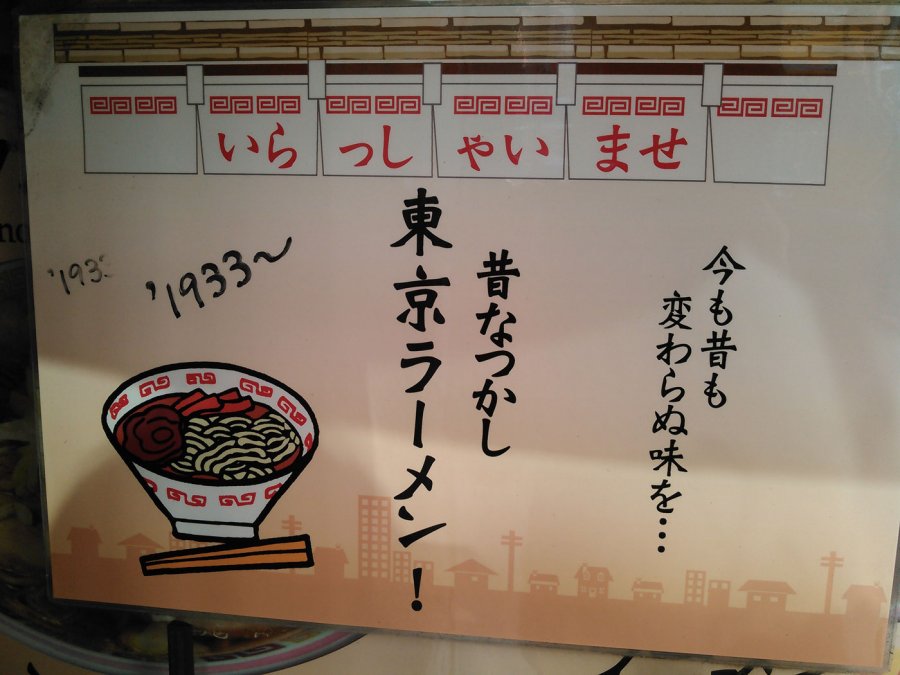 いらっしゃいませ
今も昔も
変わらぬ味を…
昔なつかし
東京ラーメン！
'1933～
'193